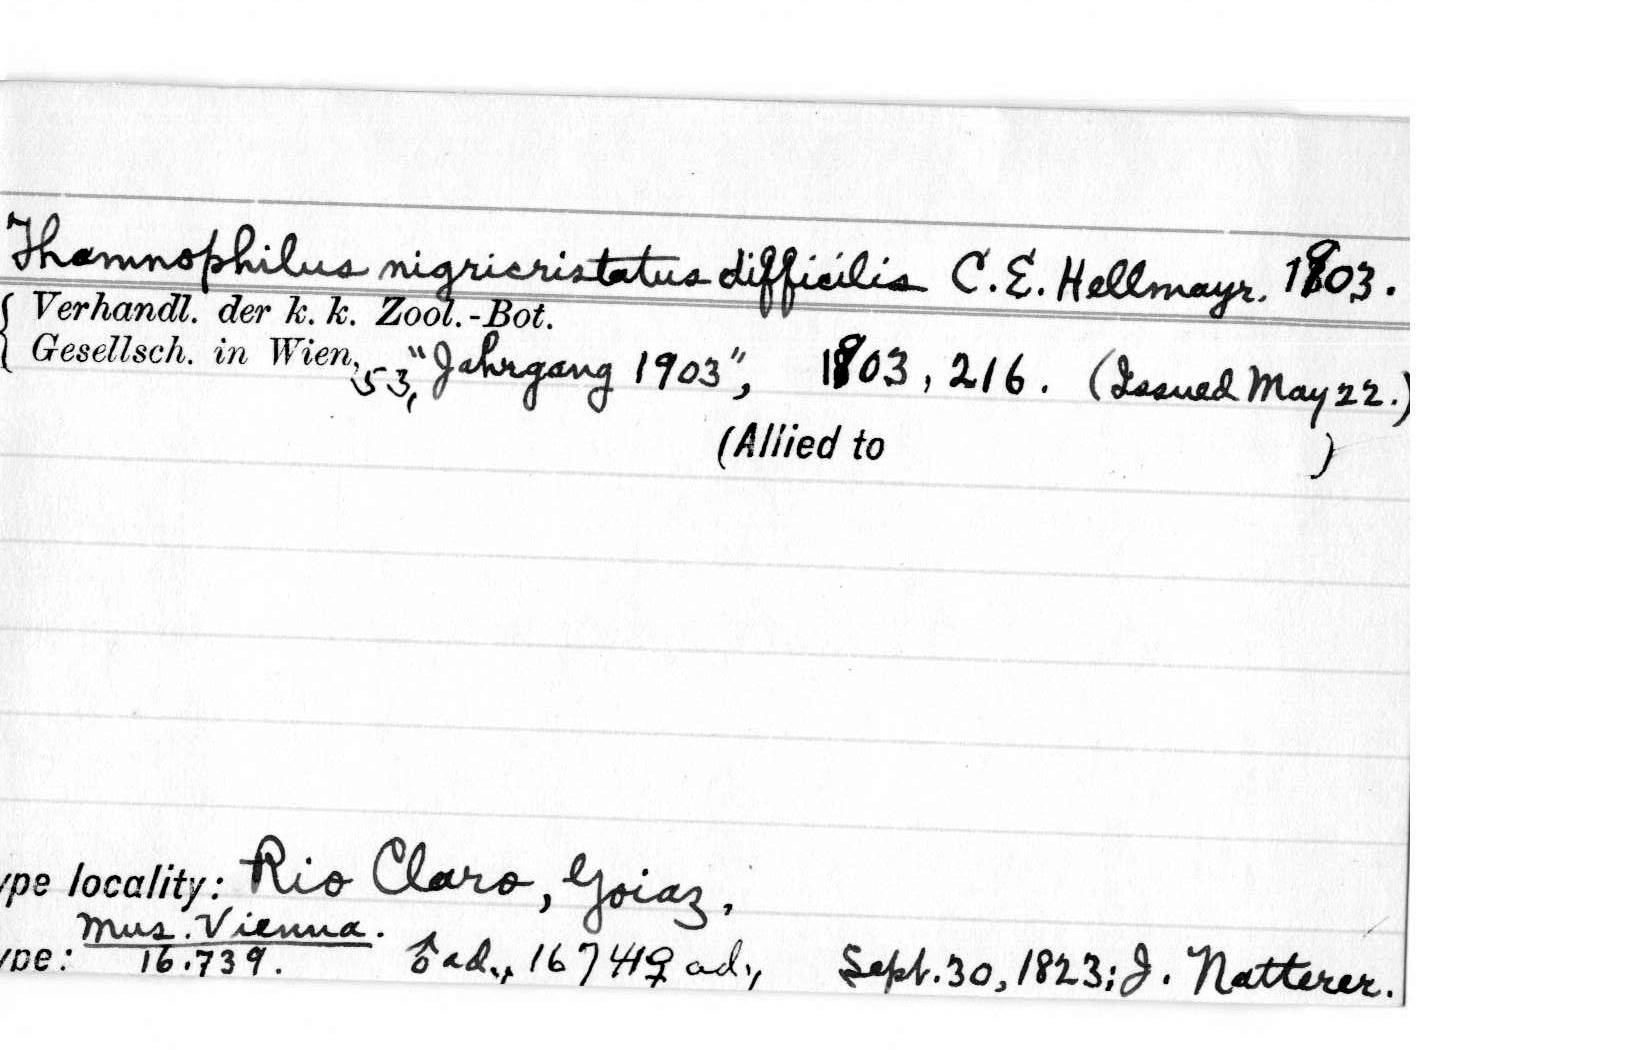 Thamnophilus nigricristatus difficilis C. E. Hellmayr. 1903.
Verhandl. der k. k. Zool.-Bot.
Gesellsch. in Wien, 53, "Jahrgang 1903", 1903, 216. (Issued May 22.)
(Allied to )
ype locality: Rio Claro, Goiaz,
Mus. Vienna.
ype: 16.739. ♂ ad., 16741♀ ad., Sept. 30, 1823; J. Natterer.